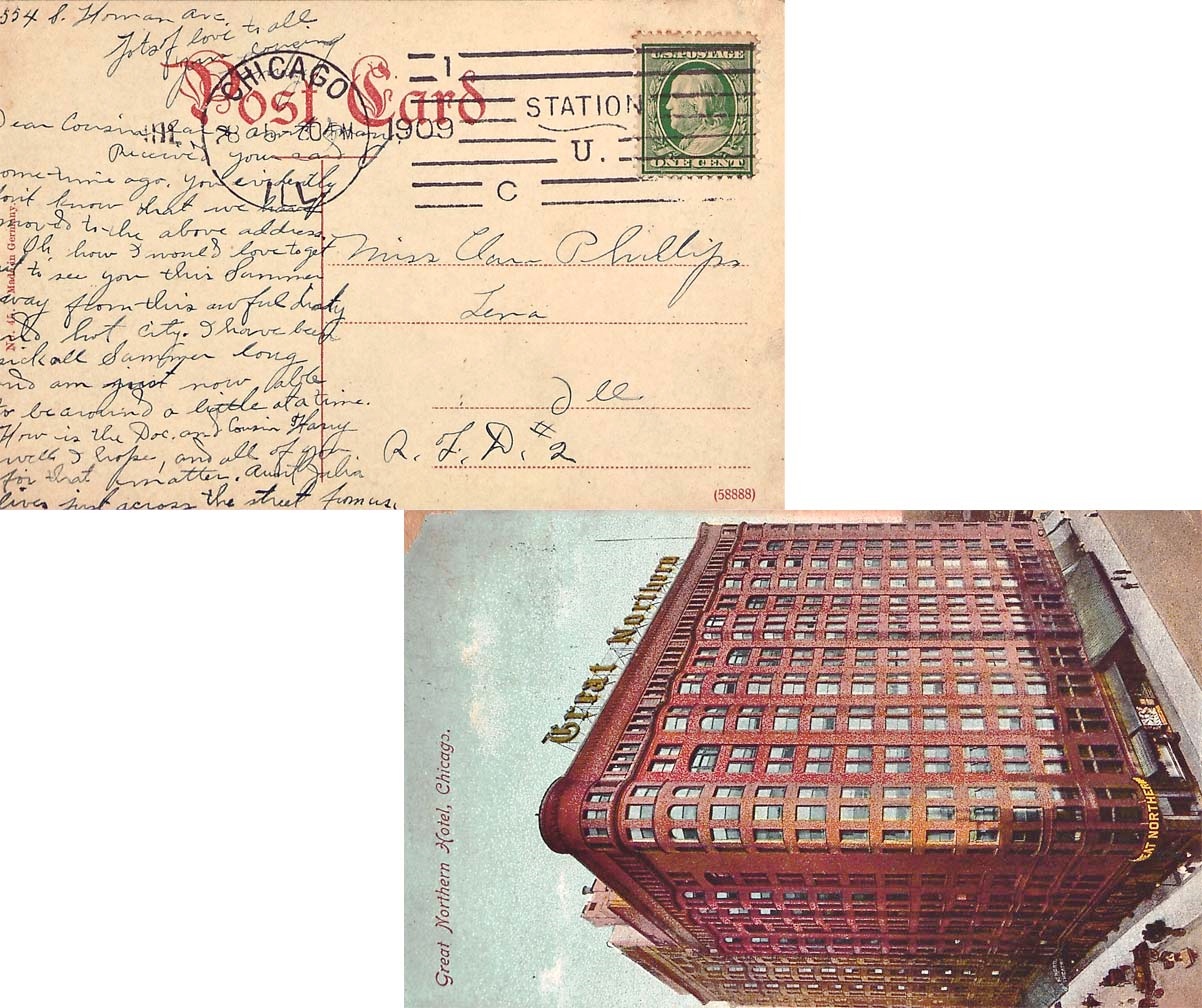 554 S. Homan Ave.
Lots of love to all
from cousins
Post Card
CHICAGO
ILL
1909
1
STATION
U.
C
U.S. POSTAGE
ONE CENT
Dear Cousin
Received your card
some-time ago. You evidently
don't know that we have
moved to the above address.
Oh how I would love to get
to see you this Summer
away from this awful dirty
and hot city. I have been
sick all Summer long
and am just now able
to be around a little at a time.
How is the Doc. and Cousin Harry
well I hope, and all of you
for that matter. Aunt Julia
lives just across the street from us.
Made in Germany.
Miss Clara Phillips
Lena
Ill
R. F. D. #2
(58888)
Great Northern
Great Northern Hotel, Chicago.
EAT NORTHERN